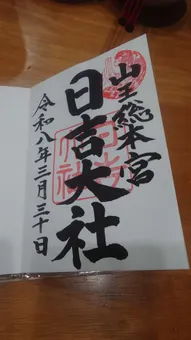 山王総本宮
日吉大社
令和八年三月三十日